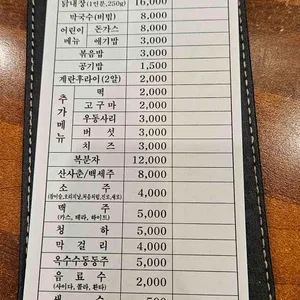 닭내장(1인분,250g) 16,000
막국수(비빔) 8,000
어린이 메뉴 돈가스 8,000
애기밥 3,000
볶음밥 3,000
공기밥 1,500
계란후라이(2알) 2,000
추가메뉴 떡 2,000
고구마 2,000
우동사리 3,000
버섯 3,000
치즈 3,000
복분자 12,000
산사춘/백세주 8,000
소주 4,000
맥주 5,000
(카스, 테라, 하이트)
청하 5,000
막걸리 4,000
옥수수동동주 5,000
음료수 2,000
(사이다, 콜라, 환타)
생수 500